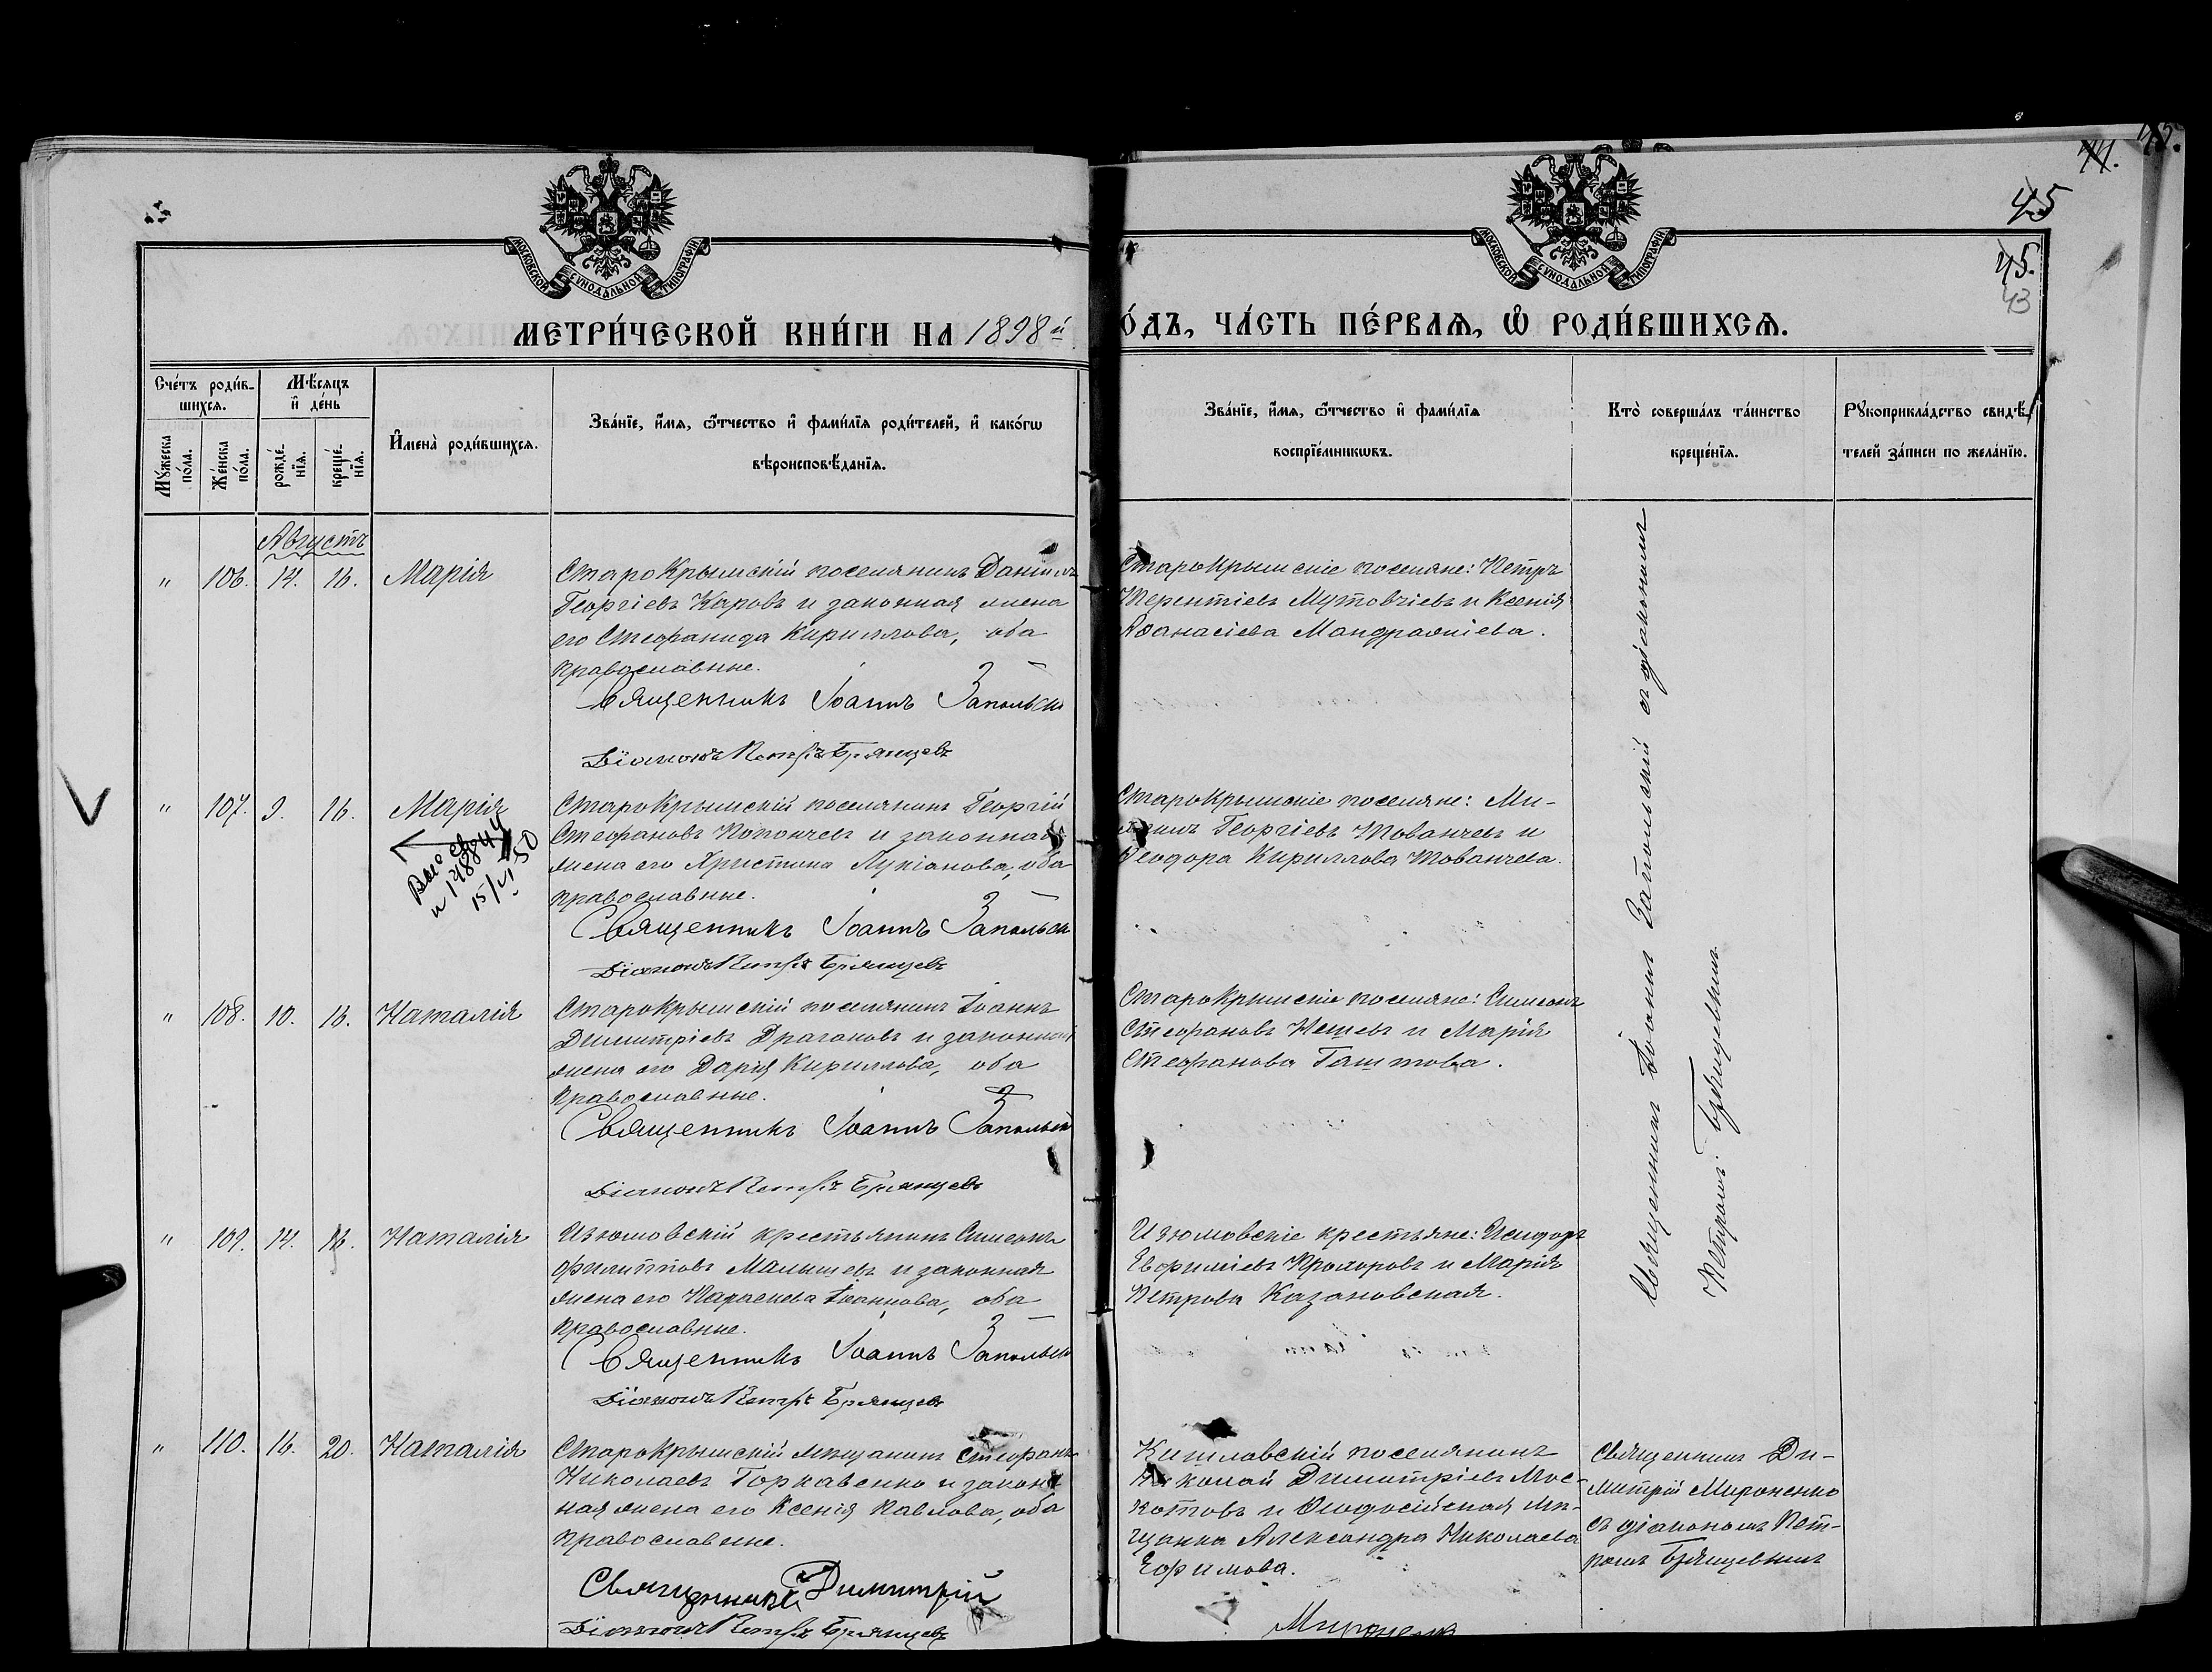 44. 43.
45
45.
43
МОСКОВСКОЙ СѴНОДАЛЬНОЙ ТИПОГРАФІИ
МОСКОВСКОЙ СѴНОДАЛЬНОЙ ТИПОГРАФІИ
МЕТРИ́ЧЕСКОЙ КНИ́ГИ НА 1898й
О́ДЪ, ЧА́СТЬ ПЕ́РВАѦ, Ѽ РОДИ́ВШИХСѦ.
Сче́тъ роди́в-
шихсѧ.
Мѣ́сѧцъ
и҆ де́нь
Мꙋ́жеска
по́ла.
Же́нска
по́ла.
рожде́-
нїѧ.
креще́-
нїѧ.
И҆мена̀ роди́вшихсѧ.
Зва́нїе, и҆́мѧ, ѻ҆́тчество и҆ фами́лїѧ роди́телей, и҆ како́гѡ
вѣроисповѣ́данїѧ.
Зва́нїе, и҆́мѧ, ѻ҆́тчество и҆ фами́лїѧ
воспрїе́мникѡвъ.
Кто̀ соверша́лъ та́инство
креще́нїѧ.
Рꙋкоприкла́дство свидѣ́-
телей за́писи по жела́нїю.
Августъ
" 106. 14. 16. Марія
Старокрымскій поселянинъ Даніилъ
Георгіевъ Каровъ и законная жена
его Стефанида Кириллова, оба
православные.
Священникъ Іоаннъ Запольск
Діаконъ Петръ Брянцевъ
Старокрымскіе поселяне: Петръ
Терентіевъ Мутовчіевъ и Ксенія
Аѳанасіева
" 107. 9. 16. Марія
15/VI 50
Старокрымскій поселянинъ Георгій
Стефановъ Попончевъ и законная
жена его Христина Лукіанова, оба
православные.
Священникъ Іоаннъ Запольск
Діаконъ Петръ Брянцевъ
Старокрымскіе поселяне: Ми-
хаилъ Георгіевъ Тованчевъ и
Ѳеодора Кириллова Тованчева.
" 108. 10. 16. Наталія
Старокрымскій поселянинъ Іоаннъ
Димитріевъ Драгановъ и законная
жена его Дарія Кириллова, оба
православные.
Священникъ Іоаннъ Запольскій
Діаконъ Петръ Брянцевъ
Старокрымскіе поселяне: Симеонъ
Стефановъ Нешевъ и Марія
Стефанова Таштова.
" 109. 14. 16. Наталія
Изюмовскій крестьянинъ Симеонъ
Филипповъ Малышевъ и законная
жена его Параскева Іоаннова, оба
православные.
Священникъ Іоаннъ Запольск
Діаконъ Петръ Брянцевъ
Изюмовскіе крестьяне: Исидоръ
Евфиміевъ Прохоровъ и Марія
Петрова Казановская.
Священникъ Іоаннъ Запольскій съ діакономъ
Петромъ Брянцевымъ
" 110. 16. 20. Наталія
Старокрымскій мѣщанинъ Стефанъ
Николаевъ Горкавенко и закон-
ная жена его Ксенія Павлова, оба
православные.
Священникъ Димитрій
Діаконъ Петръ Брянцевъ
Кишлавскій поселянинъ
Николай Димитріевъ Мос-
котовъ и Ѳеодосійская мѣ-
щанка Александра Николаева
Ефимова.
Мироненко
Священникъ Ди-
митрій Мироненко
съ діакономъ Пет-
ромъ Брянцевымъ